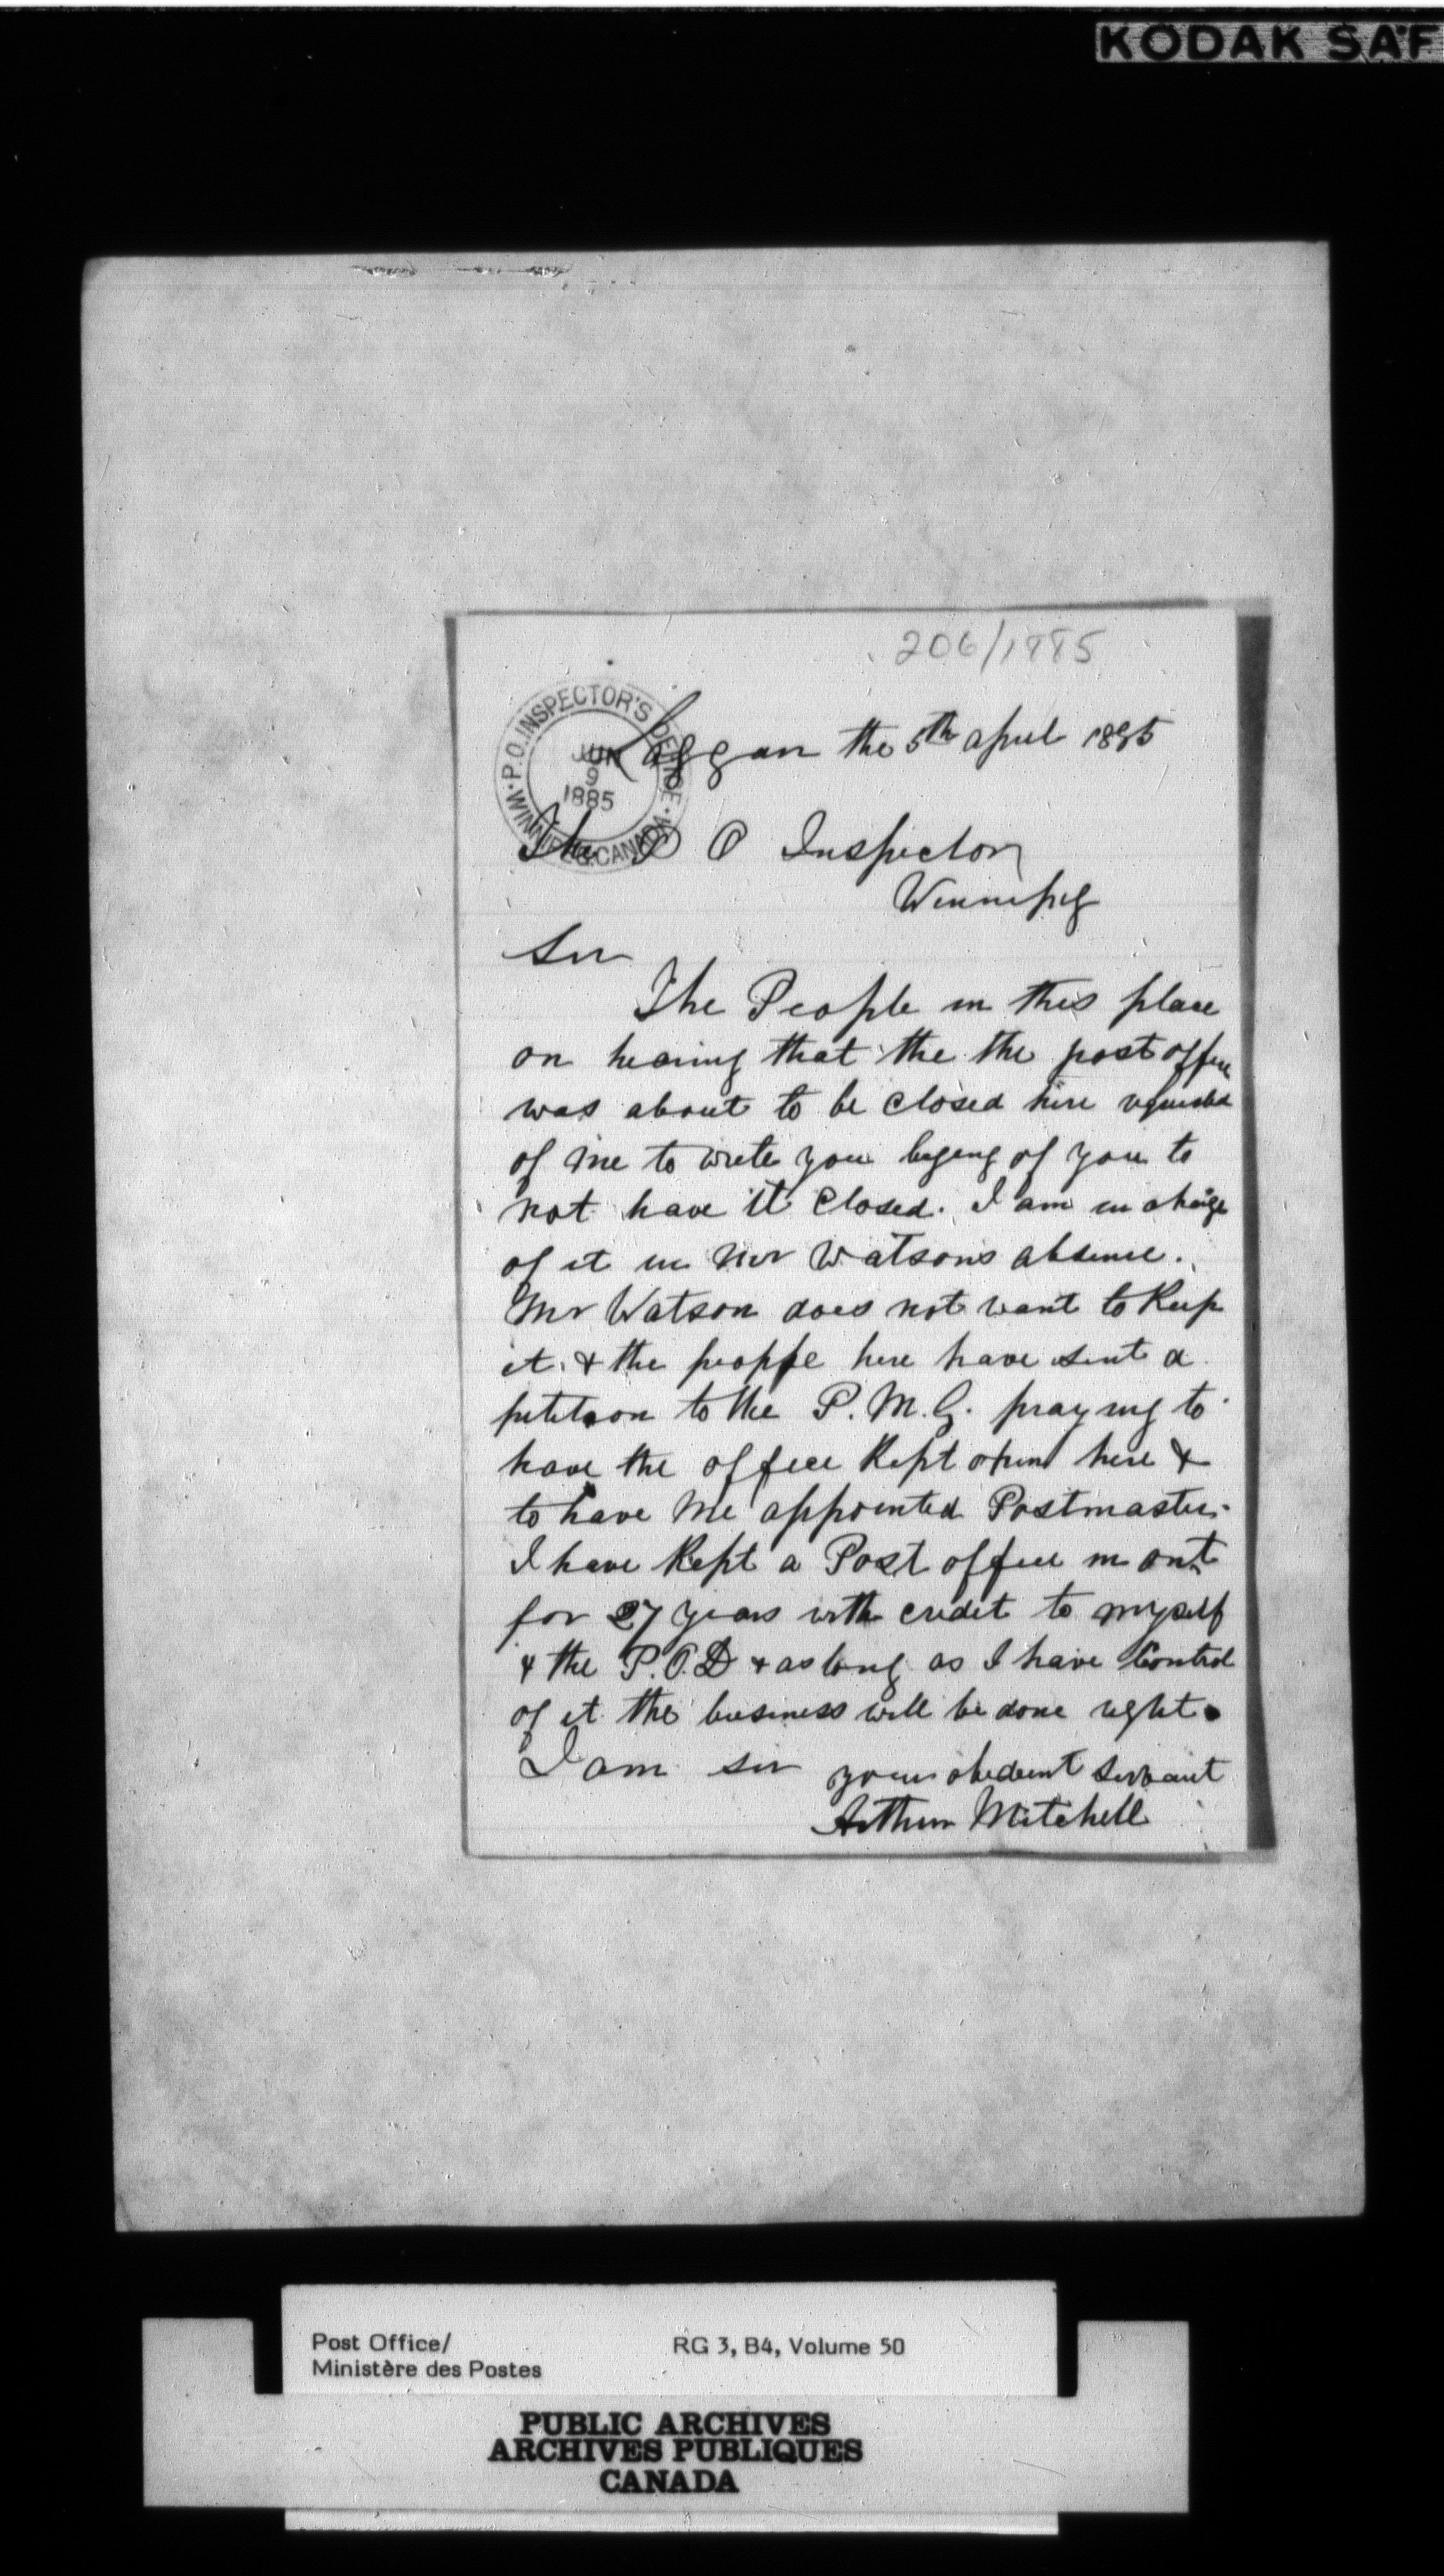 KODAK SAF
206/1885
P.O. INSPECTOR'S OFFICE
JUN
9
1885
WINNIPEG. CANADA
Laggan the 5th april 1885
The P O Inspector
Winnipeg
Sir
The People in this place
on hearing that the the post office
was about to be closed here requested
of me to write you beging of you to
not have it closed. I am in charge
of it in Mr Watsons absence.
Mr Watson does not want to Keep
it. & the people here have sent a
petition to the P. M. G. praying to
have the office Kept open here &
to have me appointed Postmaster.
I have Kept a Post office in ont
for 27 years with credit to myself
& the P. O. D & as long as I have Control
of it the business will be done right.
I am sir your obedient servant
Arthur Mitchell
Post Office/
Ministère des Postes
RG 3, B4, Volume 50
PUBLIC ARCHIVES
ARCHIVES PUBLIQUES
CANADA